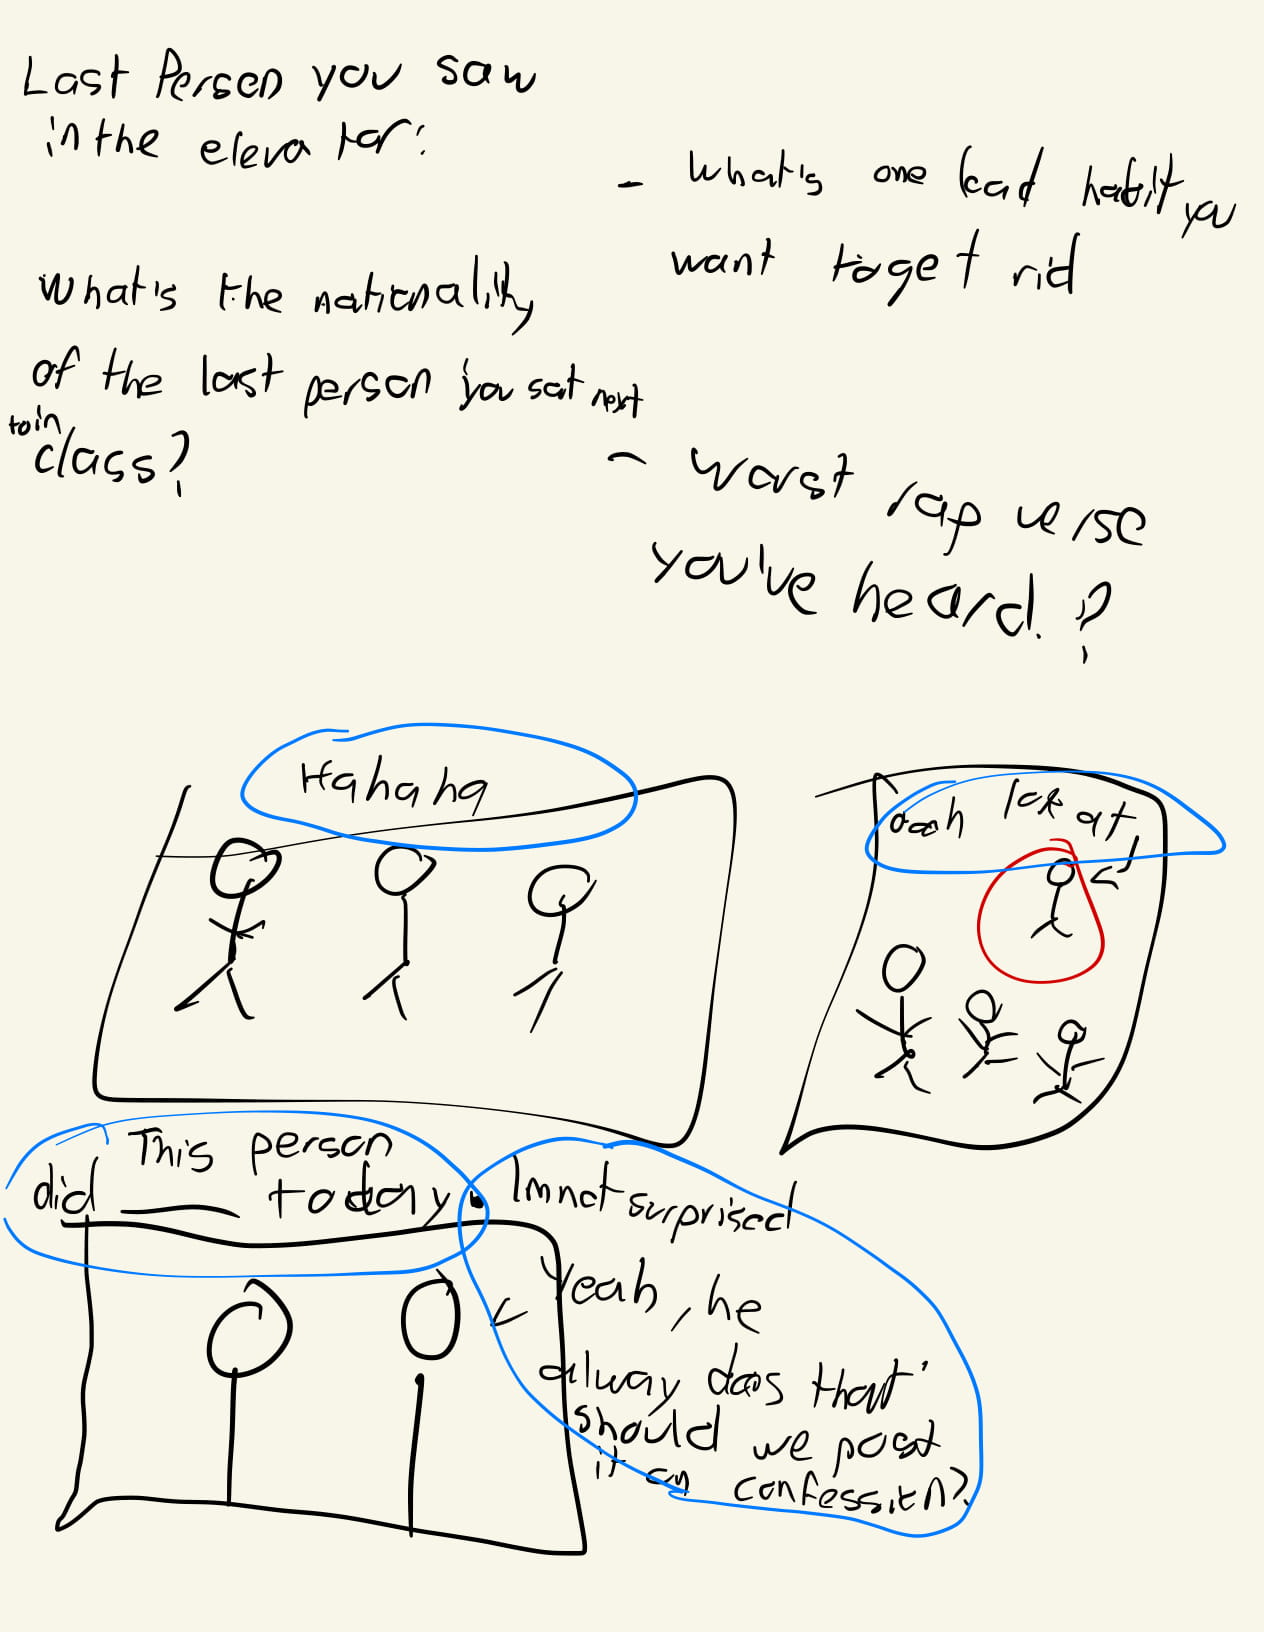 Last Person you saw
in the elevator:
What's the nationality
of the last person you sat next
to in
class?
- What's one bad habit you
want to get rid
- worst rap verse
you've heard.?
Hahaha
oooh look at
This person
did ___ today.
Im not surprised
Yeah, he
alway does that
should we post
it on confession?